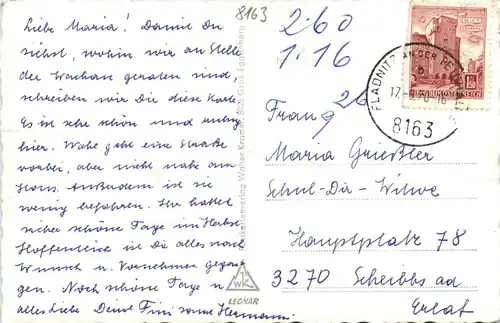 Liebe Maria! Damit Du
siehst, wohin wir an Stelle
der Wachau geraten sind,
schreiben wir Dir diese Karte.
Es ist sehr schön und ruhig
hier. Wohl geht eine Straße
vorbei, aber nicht nahe am
Haus. Außerdem ist sie
wenig befahren. Ihr hattet
sicher schöne Tage im Herbst.
Hoffentlich ist Dir alles nach
Wunsch u. Vornehmen gegan-
gen. Noch schöne Tage u.
alles Liebe Deine Fini samt Hermann.
8163
Ansichtskartenverlag Walter Kramer 8020 Graz-Eggenberg
TWK
LEONAR
260
1.16
26
FLADNITZ AN DER TEICHALM
17.-9.70-16
b
8163
REPUBLIK ÖSTERREICH
1.50
Frau
Maria Grießler
Schul-Dir-Witwe
Hauptplatz 78
3270 Scheibbs ad
Erlaf